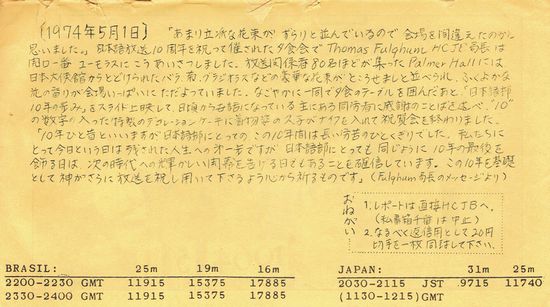 (1974年5月1日) 「あまり立派な花束が ずらりと並んでいるので 会場を間違えたのかと
思いました。」 日本語放送10周年を祝って催された夕食会で Thomas Fulghum HCJB 局長は
開口一番 ユーモラスに こうあいさつしました。 放送関係者80名ほどが 集った Palmer Hall には
日本大使館からとどけられたバラ、菊、グラジオラスなどの豪華な花束が とこうせましと並べられ、ふくよかな
花の香りが会場いっぱいに ただよっていました。 なごやかに 一同で夕食のテーブルを 囲んだあと、「日本語部
10年の歩み」を スライド上映して 日頃から お世話になっている 主にある同労者に 感謝のことばを述べ、"10"
の数字の 入った 特製のデコレーション・ケーキに 着物姿の 久子がナイフを入れて 祝賀会を終わりました。
"10年ひと昔といいますが 日本語部にとっての この10年間は 長い労苦のひとくぎりでした。 私たちに
とって今日という日は 残された人生への 第一歩ですが 日本語部にとっても 同じように 10年の最後を
飾る日は、次の時代への 輝かしい 開幕を告げる 日でもあることを 確信しています。 この10年を基礎
として 神がさらに 放送を祝し 用いて下さるよう 心から 祈るものです」 (Fulghum 局長のメッセージより)
おねがい
1. レポートは 直接 HCJB へ。
(私書箱千番 は 中止)
2. なるべく 返信用として 20円
切手を 一枚 同封して下さい。
BRASIL: 25m 19m 16m
2200-2230 GMT 11915 15375 17885
2330-2400 GMT 11915 15375 17885
JAPAN: 31m 25m
2030-2115 JST 9715 11740
(1130-1215) GMT